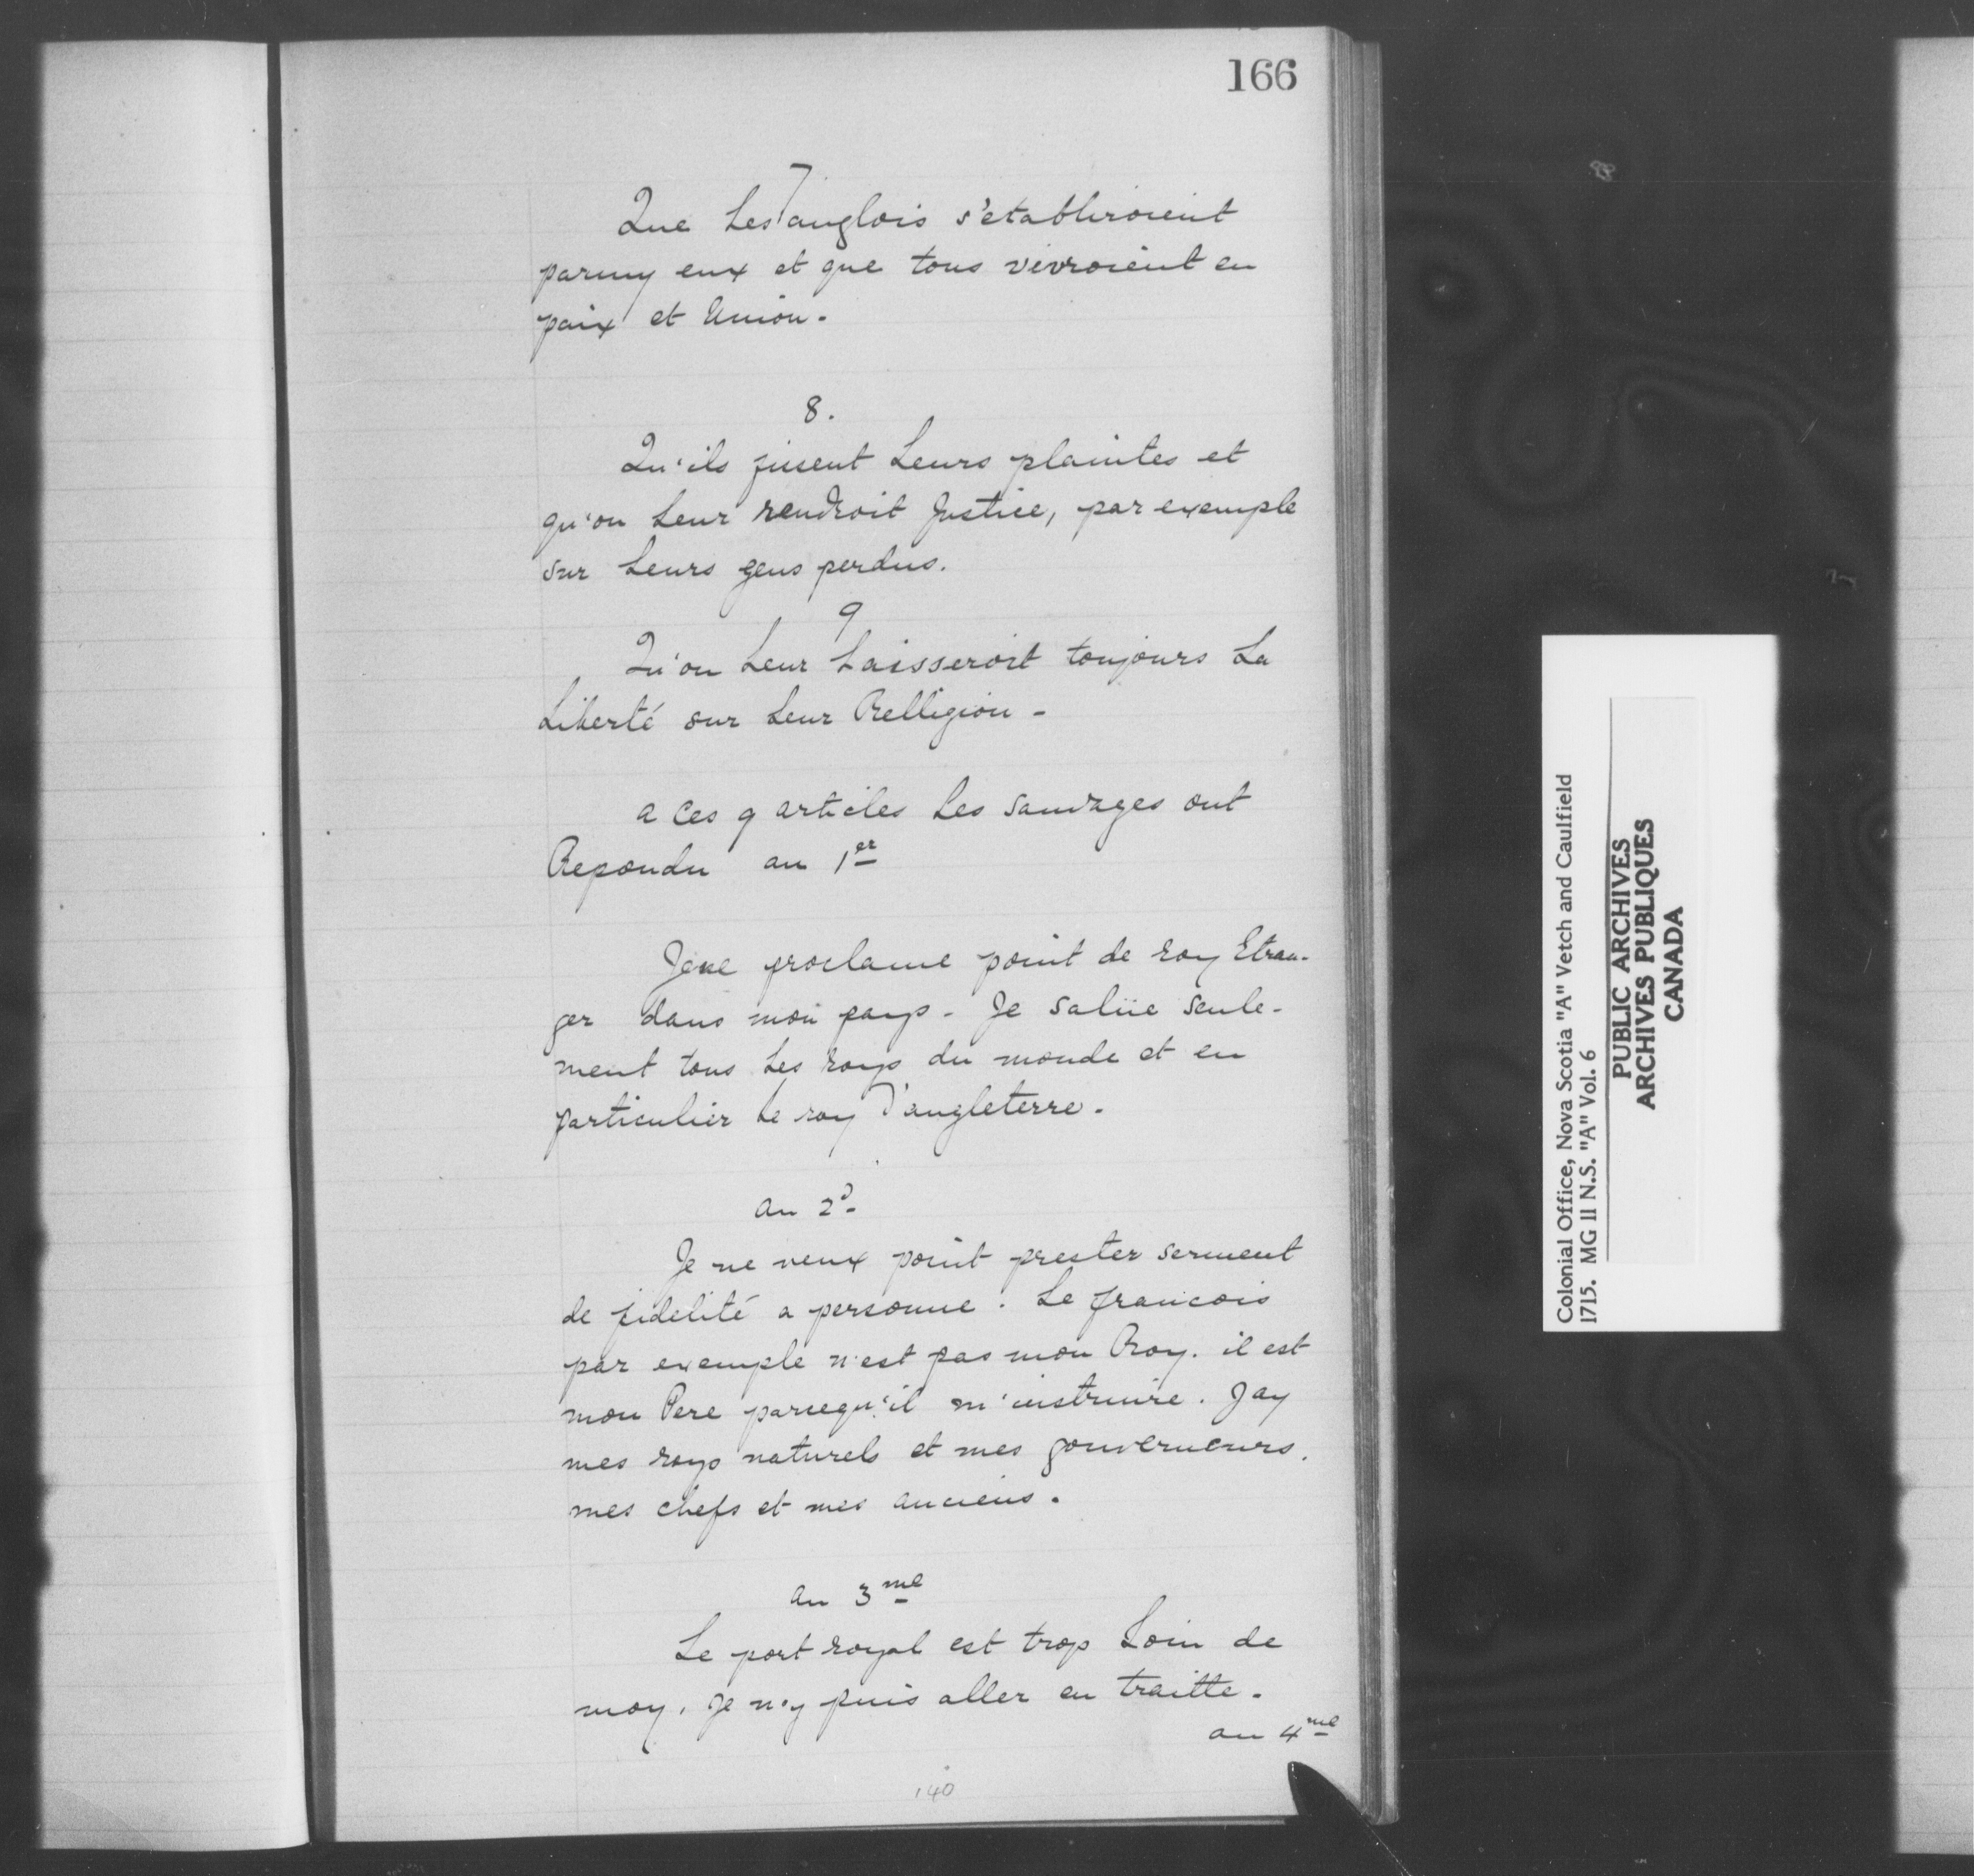 166
7
Que Les anglois s'etabliroient
parmy eux et que tous vivroient en
paix et Union.
8.
Qu'ils fissent Leurs plaintes et
qu'on Leur rendroit Justice, par exemple
sur Leurs gens perdus.
9
Qu'on Leur Laisseroit toujours La
Liberté sur Leur Relligion -
a Ces 9 articles Les sauvages ont
Repondu au 1er
Je ne proclame point de roy Etran-
ger dans mon pays - Je salüe seule-
ment tous Les roys du monde et en
particulier Le roy d'angleterre.
au 2d
Je ne veux point prester serment
de fidelité a personne. Le francois
par exemple n'est pas mon Roy. il est
mon Pere parcequ'il m'instruire. Jay
mes roys naturels et mes gouverneurs.
mes chefs et mes anciens.
au 3me
Le port royal est trop Loin de
moy, je n'y puis aller en traitte.
au 4me
140
Colonial Office, Nova Scotia "A" Vetch and Caulfield
1715. MG 11 N.S. "A" Vol. 6
PUBLIC ARCHIVES
ARCHIVES PUBLIQUES
CANADA